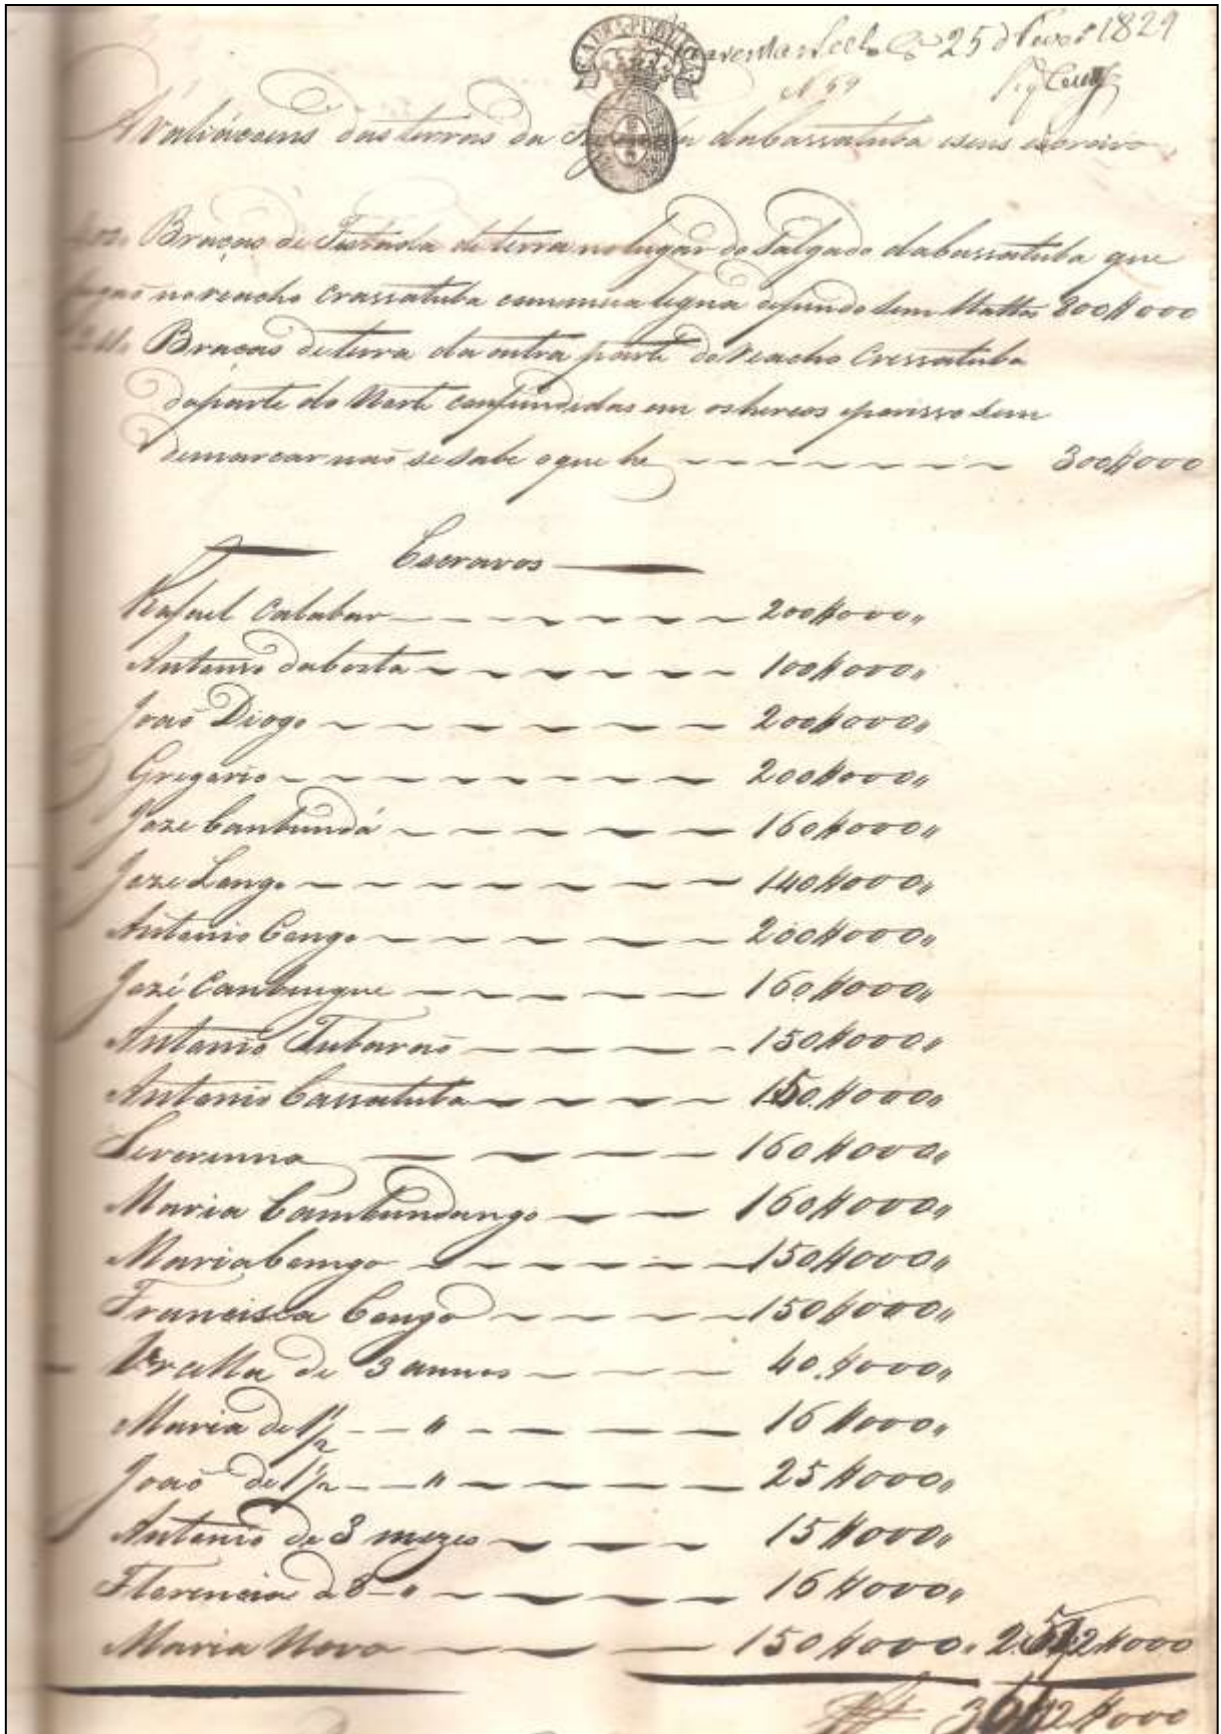 25 de 1829
N 59
Avaliácoens das terras da dabassatuba e seus escravo
Braças de Testada de terra no lugar do Salgado dabassatuba que
no reacho Crassatuba com mea legua de fundo sem Matta 800$000
Braças de terra da outra parte do reacho Cressatuba
da parte do Norte confundidas com os hereos e por isso sem
demarcar naõ se sabe o que he 300$000
Escravos
Rafael Calabar 200$000
Antonio da Costa 100$000
Joaõ Diogo 200$000
Gregorio 200$000
Joze Cambundá 160$000
Joze Longo 140$000
Antonio Congo 200$000
Jozé Canbengue 160$000
Antonio Tubaraõ 150$000
Antonio Cassatuba 150$000
Severinna 160$000
Maria Cambundango 160$000
Maria Congo 150$000
Francisca Congo 150$000
de 3 annos 40$000
Maria de 1 1/2 " 16$000
Joaõ de 1 1/2 " 25$000
Antonio de 3 mezes 15$000
Florencia d 8 " 16$000
Maria Nova 150$000